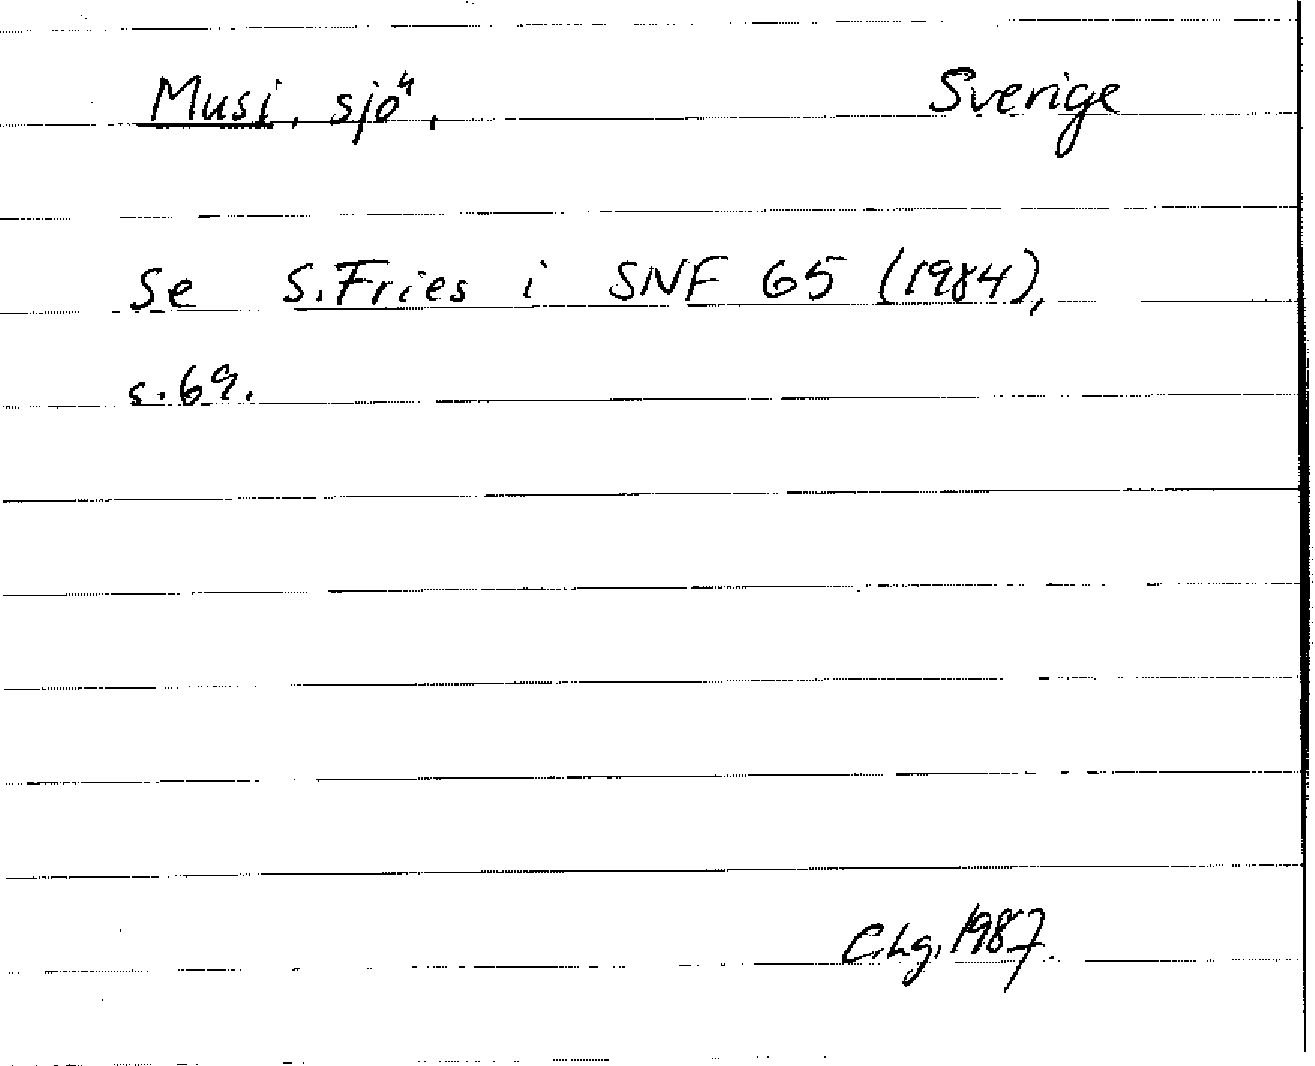 Musi, sjö, Sverige
Se S. Fries i SNF 65 (1984),
s. 69.
C.Lg. 1987.